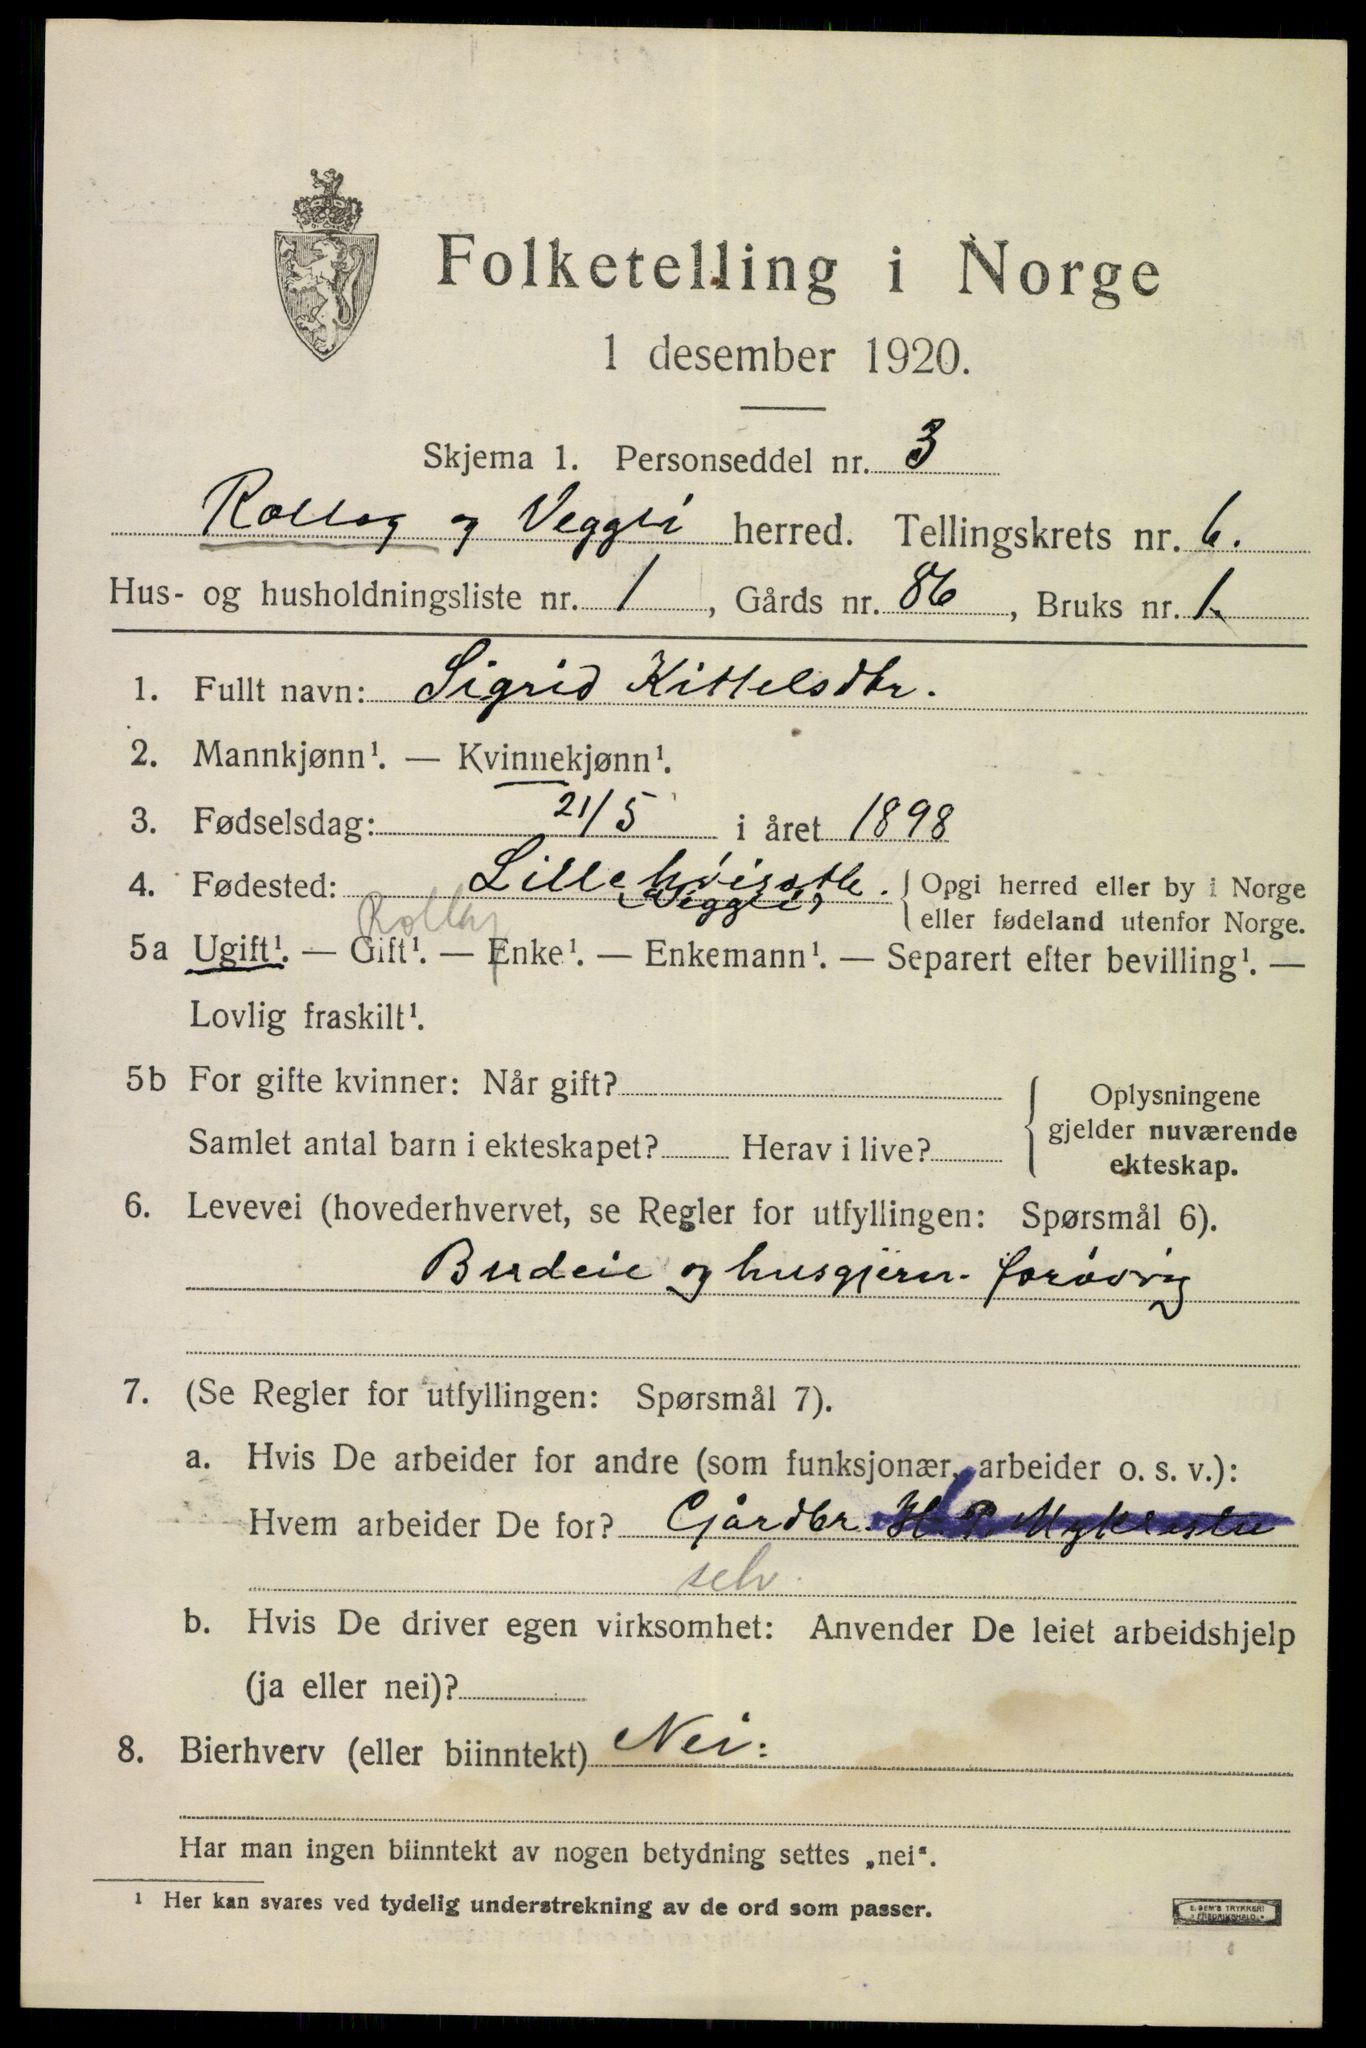 Folketelling i Norge
1 desember 1920.
Skjema 1. Personseddel nr. 3
Rollag og Veggli herred. Tellingskrets nr. 6.
Hus- og husholdningsliste nr. 1, Gårds nr. 86, Bruks nr. 1.
1. Fullt navn: Sigrid Kittelsdtr.
2. Mannkjønn¹. — Kvinnekjønn¹.
3. Fødselsdag: 21/5 i året 1898
4. Fødested: { Opgi herred eller by i Norge
Veggli
eller fødeland utenfor Norge.
Rollag
5a Ugift¹. — Gift¹. — Enke¹. — Enkemann¹. — Separert efter bevilling¹. —
Lovlig fraskilt¹.
5b For gifte kvinner: Når gift?
Samlet antal barn i ekteskapet? Herav i live?
Oplysningene
gjelder nuværende
ekteskap.
6. Levevei (hovederhvervet, se Regler for utfyllingen: Spørsmål 6).
Budeie og husgjern. forøvrig
7. (Se Regler for utfyllingen: Spørsmål 7).
a. Hvis De arbeider for andre (som funksjonær, arbeider o. s. v.):
Hvem arbeider De for? Gårdbr. H. P. Myklestu
selv.
b. Hvis De driver egen virksomhet: Anvender De leiet arbeidshjelp
(ja eller nei)?
8. Bierhverv (eller biinntekt) Nei:
Har man ingen biinntekt av nogen betydning settes „nei“.
¹ Her kan svares ved tydelig understrekning av de ord som passer.
E. SEM'S TRYKKERI
FREDRIKSHALD